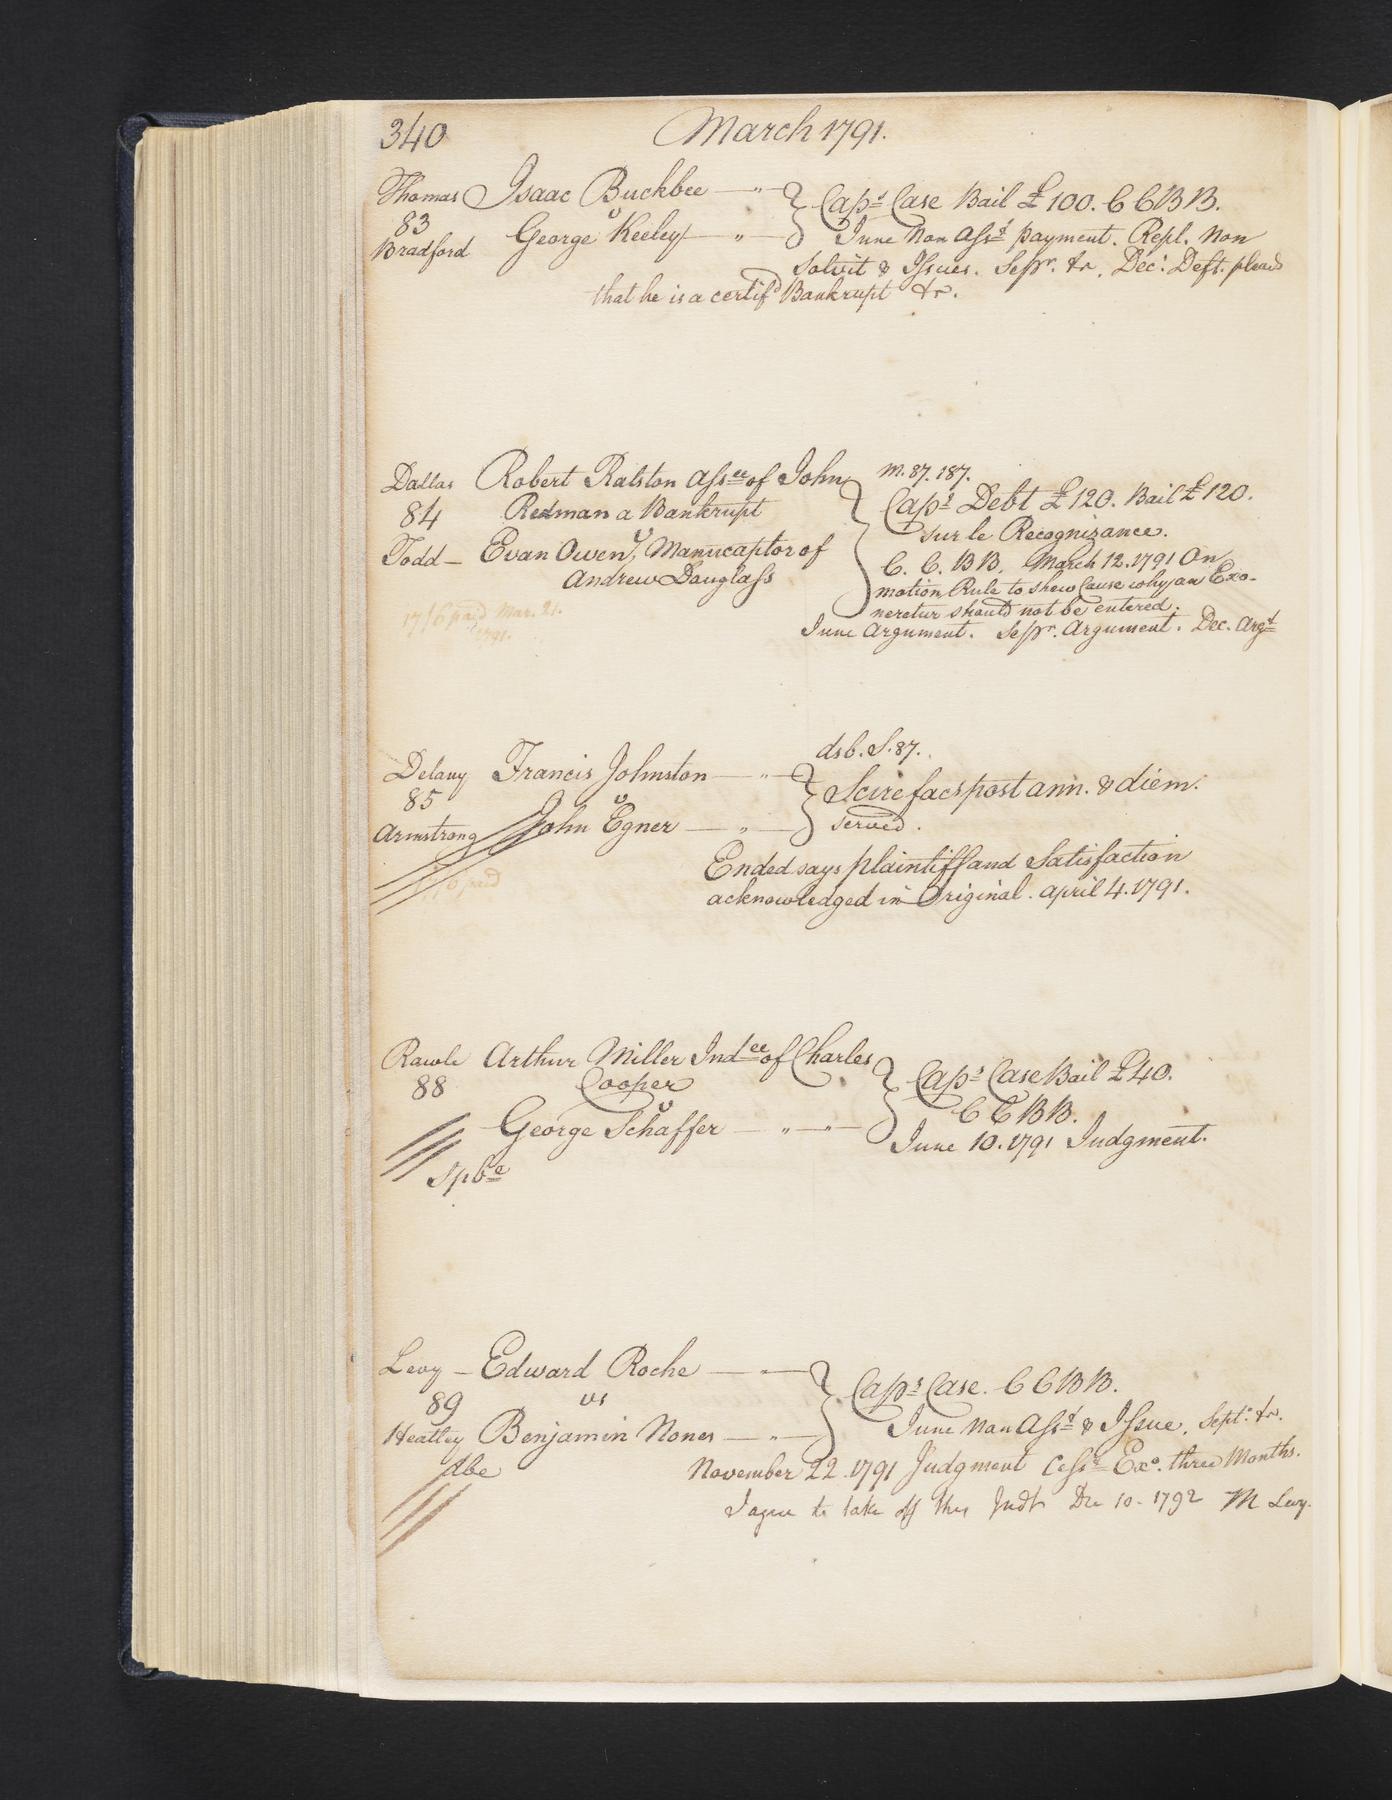 340 March 1791.
Thomas Isaac Buckbee — " — Cap.s Case Bail £100. C C B B.
83 v
Bradford George Keeley — " — June Non Ass.t payment. Repl. Non
Solvit & Issues. Sepr. &c. Dec.r Deft. pleads
that he is a certif.d Bankrupt &c.
Dallas Robert Ralston Ass.ee of John M. 87. 187.
84 Redman a Bankrupt Cap.s Debt £120. Bail £120.
v sur le Recognizance.
Todd — Evan Owen, Manucaptor of C. C. B B. March 12. 1791 On
Andrew Douglass motion Rule to shew Cause why an Exo-
17/6 paid Mar. 21. neretur should not be entered.
1791. June Argument. Sepr. Argument. Dec. Arg.t
dsb. S. 87.
Delany Francis Johnston — " — Scire facs post ann. & diem.
85 v
Armstrong John Egner — " — served.
Ended says plaintiff and Satisfaction
paid
acknowledged in Original. April 4. 1791.
Rawle Arthur Miller Ind.ee of Charles Cap.s Case Bail £40.
88 Cooper
v C C B B.
George Schaffer — " — " — June 10. 1791 Judgment.
Spb.e
Levy — Edward Roche — " — Cap.s Case. C C B B.
89 vs
Heatley Benjamin Nones — " — June Non Ass.t & Issue. Sept.r &c.
November 22. 1791 Judgment Cess.t Exo. three Months.
I agree to take off this Judt Dec 10 - 1792 M Levy.